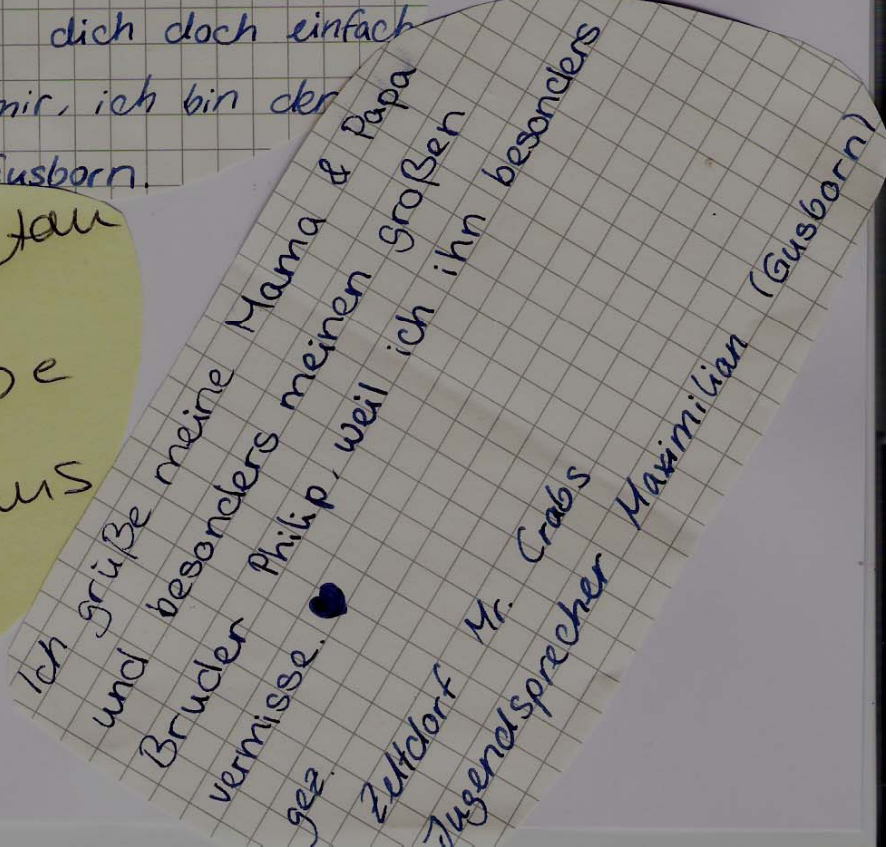 dich doch einfach
mir, ich bin der
Gusborn.
Ich grüße meine Mama & Papa
und besonders meinen großen
Bruder Philip, weil ich ihn besonders
vermisse.
gez.
Zeltdorf Mr. Crabs
Jugendsprecher Maximilian (Gusborn)